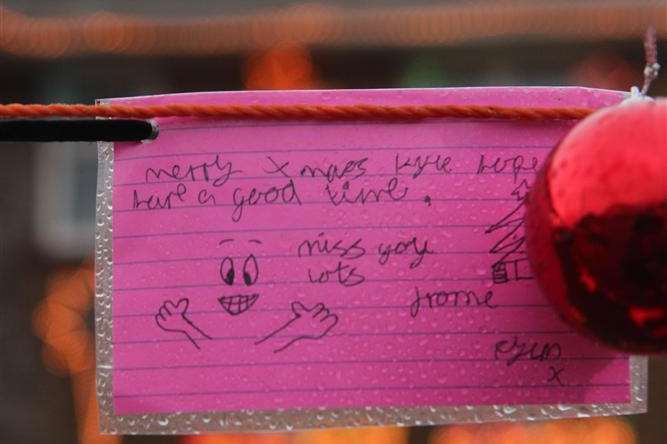 merry xmaes kyle hope
have a good time.
miss you
lots
frome
x